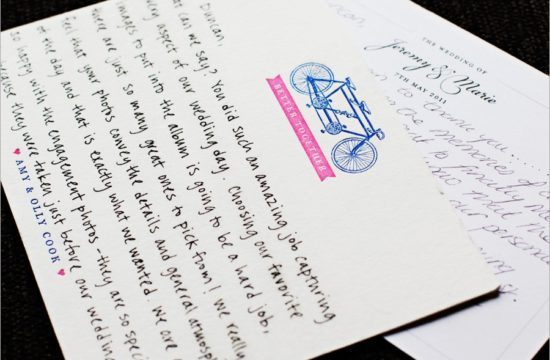 BETTER TOGETHER
Duncan,
hat can we say? You did such an amazing job capturing
very aspect of our wedding day. Choosing our favorite
images to put into the album is going to be a hard job,
there are just so many great ones to pick from! We really
feel that your photos convey the details and general atmosp
of the day and that is exactly what we wanted. We are
so happy with the engagement photos - they are so speci
cause they were taken just before our wedding
♥ AMY & OLLY COOK ♥
THE WEDDING OF
Jeremy & Marie
7TH MAY 2011
you...
memories